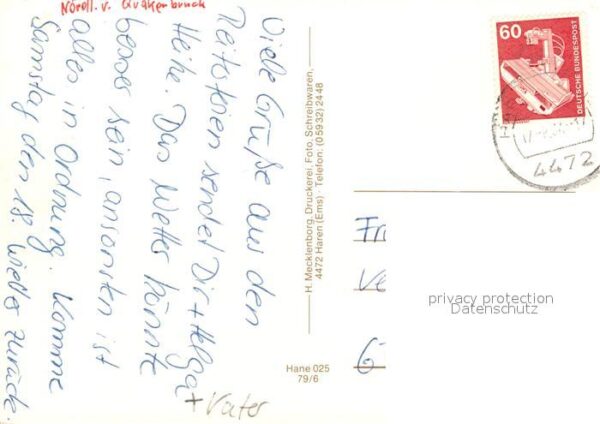 Nördl. v. Quakenbrück
Viele Grüße aus den
Reitoferien sendet Dir + Helga
+ Vater
Heike. Das Wetter könnte
besser sein, ansonsten ist
alles in Ordnung. Komme
Samstag den 18. wieder zurück.
H. Mecklenborg, Druckerei, Foto, Schreibwaren,
4472 Haren (Ems) · Telefon: (05932) 2448
Hane 025
79/6
60
DEUTSCHE BUNDESPOST
4472
Fr
Ve
G
privacy protection
Datenschutz